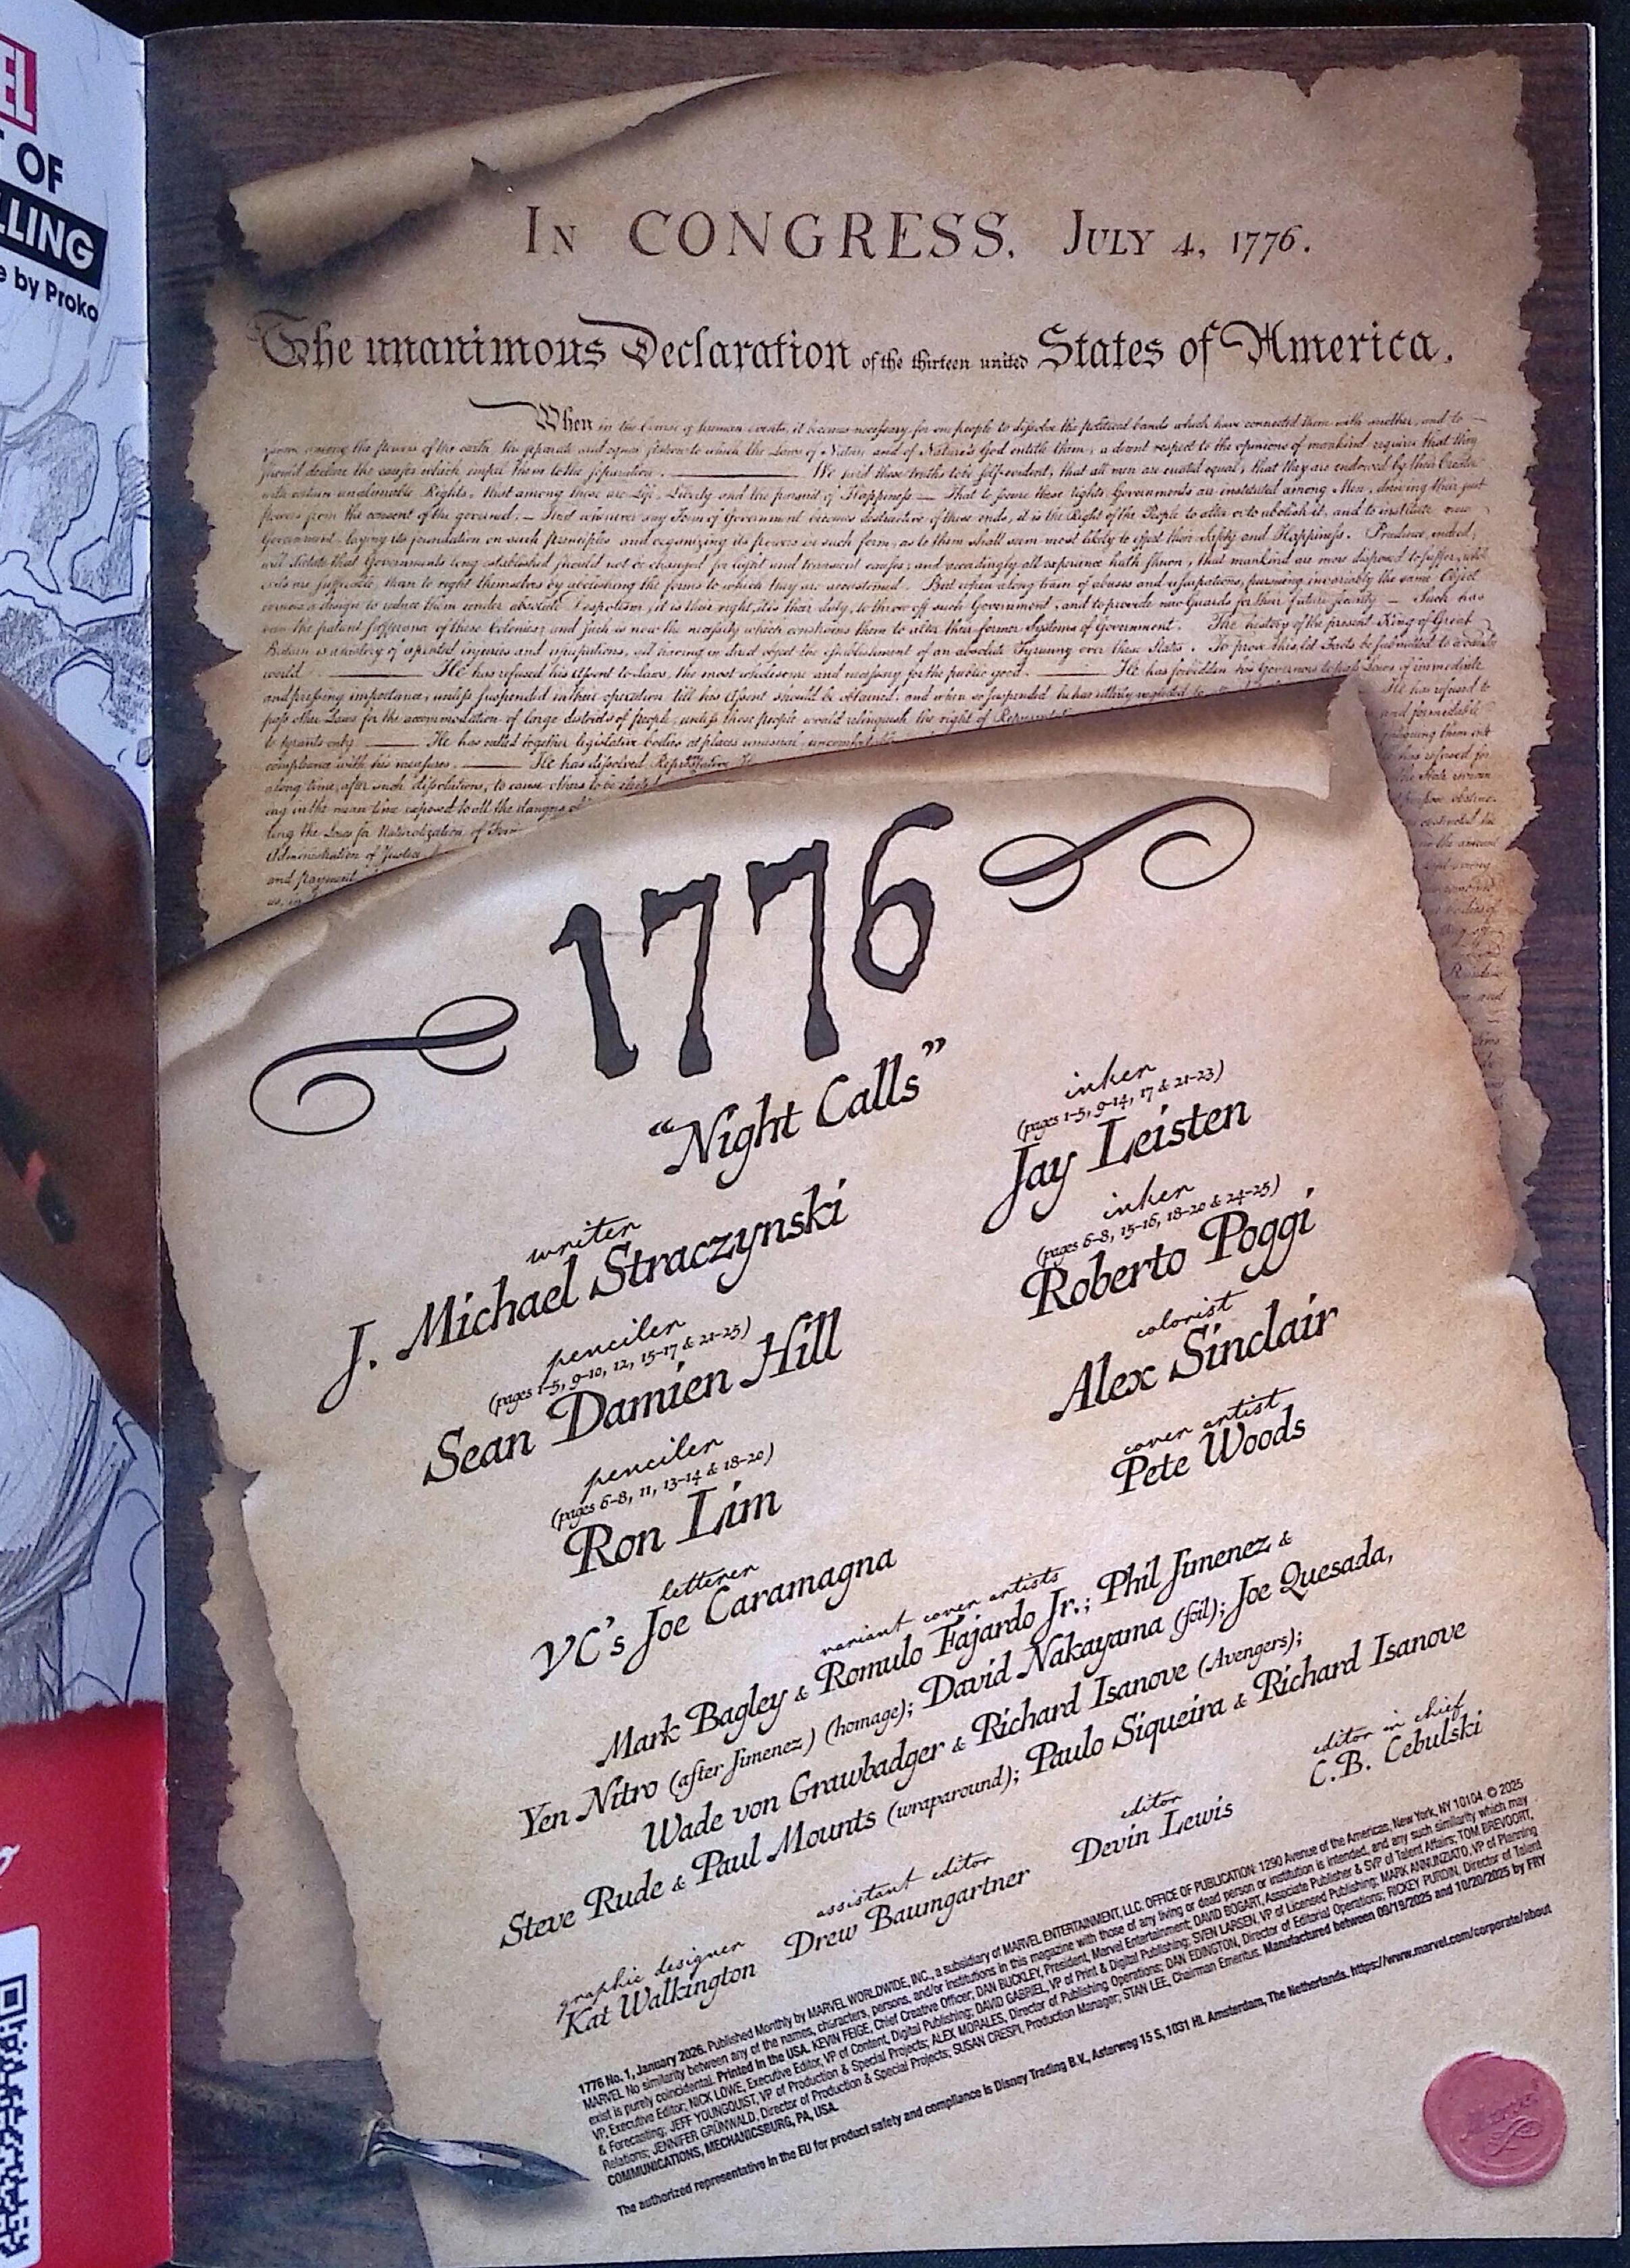 EL
OF
LLING
e by Proko
IN CONGRESS, JULY 4, 1776.
The unanimous Declaration of the thirteen united States of America.
When in the Course of human events, it becomes necessary for one people to dissolve the political bands which have connected them with another, and to
among the powers of the earth, the separate and equal station to which the Laws of Nature and of Nature's God entitle them, a decent respect to the opinions of mankind requires that they
should declare the causes which impel them to the separation. We hold these truths to be self-evident, that all men are created equal, that they are endowed by their Creator
with certain unalienable Rights, that among these are Life, Liberty and the pursuit of Happiness — That to secure these rights, Governments are instituted among Men, deriving their just
powers from the consent of the governed. — That whenever any Form of Government becomes destructive of these ends, it is the Right of the People to alter or to abolish it, and to institute new
Government, laying its foundation on such principles and organizing its powers in such form, as to them shall seem most likely to effect their Safety and Happiness. Prudence, indeed,
will dictate that Governments long established should not be changed for light and transient causes; and accordingly all experience hath shewn, that mankind are more disposed to suffer, while
evils are sufferable, than to right themselves by abolishing the forms to which they are accustomed. But when a long train of abuses and usurpations, pursuing invariably the same Object
evinces a design to reduce them under absolute Despotism, it is their right, it is their duty, to throw off such Government, and to provide new Guards for their future security — Such has
been the patient sufferance of these Colonies; and such is now the necessity which constrains them to alter their former Systems of Government. The history of the present King of Great
Britain is a history of repeated injuries and usurpations, all having in direct object the establishment of an absolute Tyranny over these States. To prove this, let Facts be submitted to a candid
world. He has refused his Assent to Laws, the most wholesome and necessary for the public good. He has forbidden his Governors to pass Laws of immediate
and pressing importance, unless suspended in their operation till his Assent should be obtained; and when so suspended, he has utterly neglected to He has refused to
pass other Laws for the accommodation of large districts of people, unless those people would relinquish the right of and formidable
to tyrants only. He has called together legislative bodies at places unusual, uncomfortable
compliance with his measures. He has dissolved has refused for
a long time, after such dissolutions, to cause others to be the State remain
ing in the mean time exposed to all the dangers of
ling the Laws for Naturalization of
Administration of Justice
and payment
us, in
1776
“Night Calls”
writer
J. Michael Straczynski
penciler
(pages 1-5, 9-10, 12, 15-17 & 21-25)
Sean Damien Hill
penciler
(pages 6-8, 11, 13-14 & 18-20)
Ron Lim
letterer
VC's Joe Caramagna
inker
(pages 1-5, 9-14, 17 & 21-23)
Jay Leisten
inker
(pages 6-8, 15-16, 18-20 & 24-25)
Roberto Poggi
colorist
Alex Sinclair
cover artist
Pete Woods
variant cover artists
Mark Bagley & Romulo Fajardo Jr.; Phil Jimenez &
Yen Nitro (after Jimenez) (homage); David Nakayama (foil); Joe Quesada,
Wade von Grawbadger & Richard Isanove (Avengers);
Steve Rude & Paul Mounts (wraparound); Paulo Siqueira & Richard Isanove
graphic designer
Kat Walkington
assistant editor
Drew Baumgartner
editor
Devin Lewis
editor in chief
C.B. Cebulski
1776 No. 1, January 2026. Published Monthly by MARVEL WORLDWIDE, INC., a subsidiary of MARVEL ENTERTAINMENT, LLC. OFFICE OF PUBLICATION: 1290 Avenue of the Americas, New York, NY 10104. © 2025
MARVEL No similarity between any of the names, characters, persons, and/or institutions in this magazine with those of any living or dead person or institution is intended, and any such similarity which may
exist is purely coincidental. Printed in the USA. KEVIN FEIGE, Chief Creative Officer; DAN BUCKLEY, President, Marvel Entertainment; DAVID BOGART, Associate Publisher & SVP of Talent Affairs; TOM BREVOORT,
VP, Executive Editor; NICK LOWE, Executive Editor, VP of Content, Digital Publishing; DAVID GABRIEL, VP of Print & Digital Publishing; SVEN LARSEN, VP of Licensed Publishing; MARK ANNUNZIATO, VP of Planning
& Forecasting; JEFF YOUNGQUIST, VP of Production & Special Projects; ALEX MORALES, Director of Publishing Operations; DAN EDINGTON, Director of Editorial Operations; RICKEY PURDIN, Director of Talent
Relations; JENNIFER GRÜNWALD, Director of Production & Special Projects; SUSAN CRESPI, Production Manager; STAN LEE, Chairman Emeritus. Manufactured between 09/19/2025 and 10/20/2025 by FRY
COMMUNICATIONS, MECHANICSBURG, PA, USA.
The authorized representative in the EU for product safety and compliance is Disney Trading B.V., Asterweg 15 S, 1031 HL Amsterdam, The Netherlands. https://www.marvel.com/corporate/about